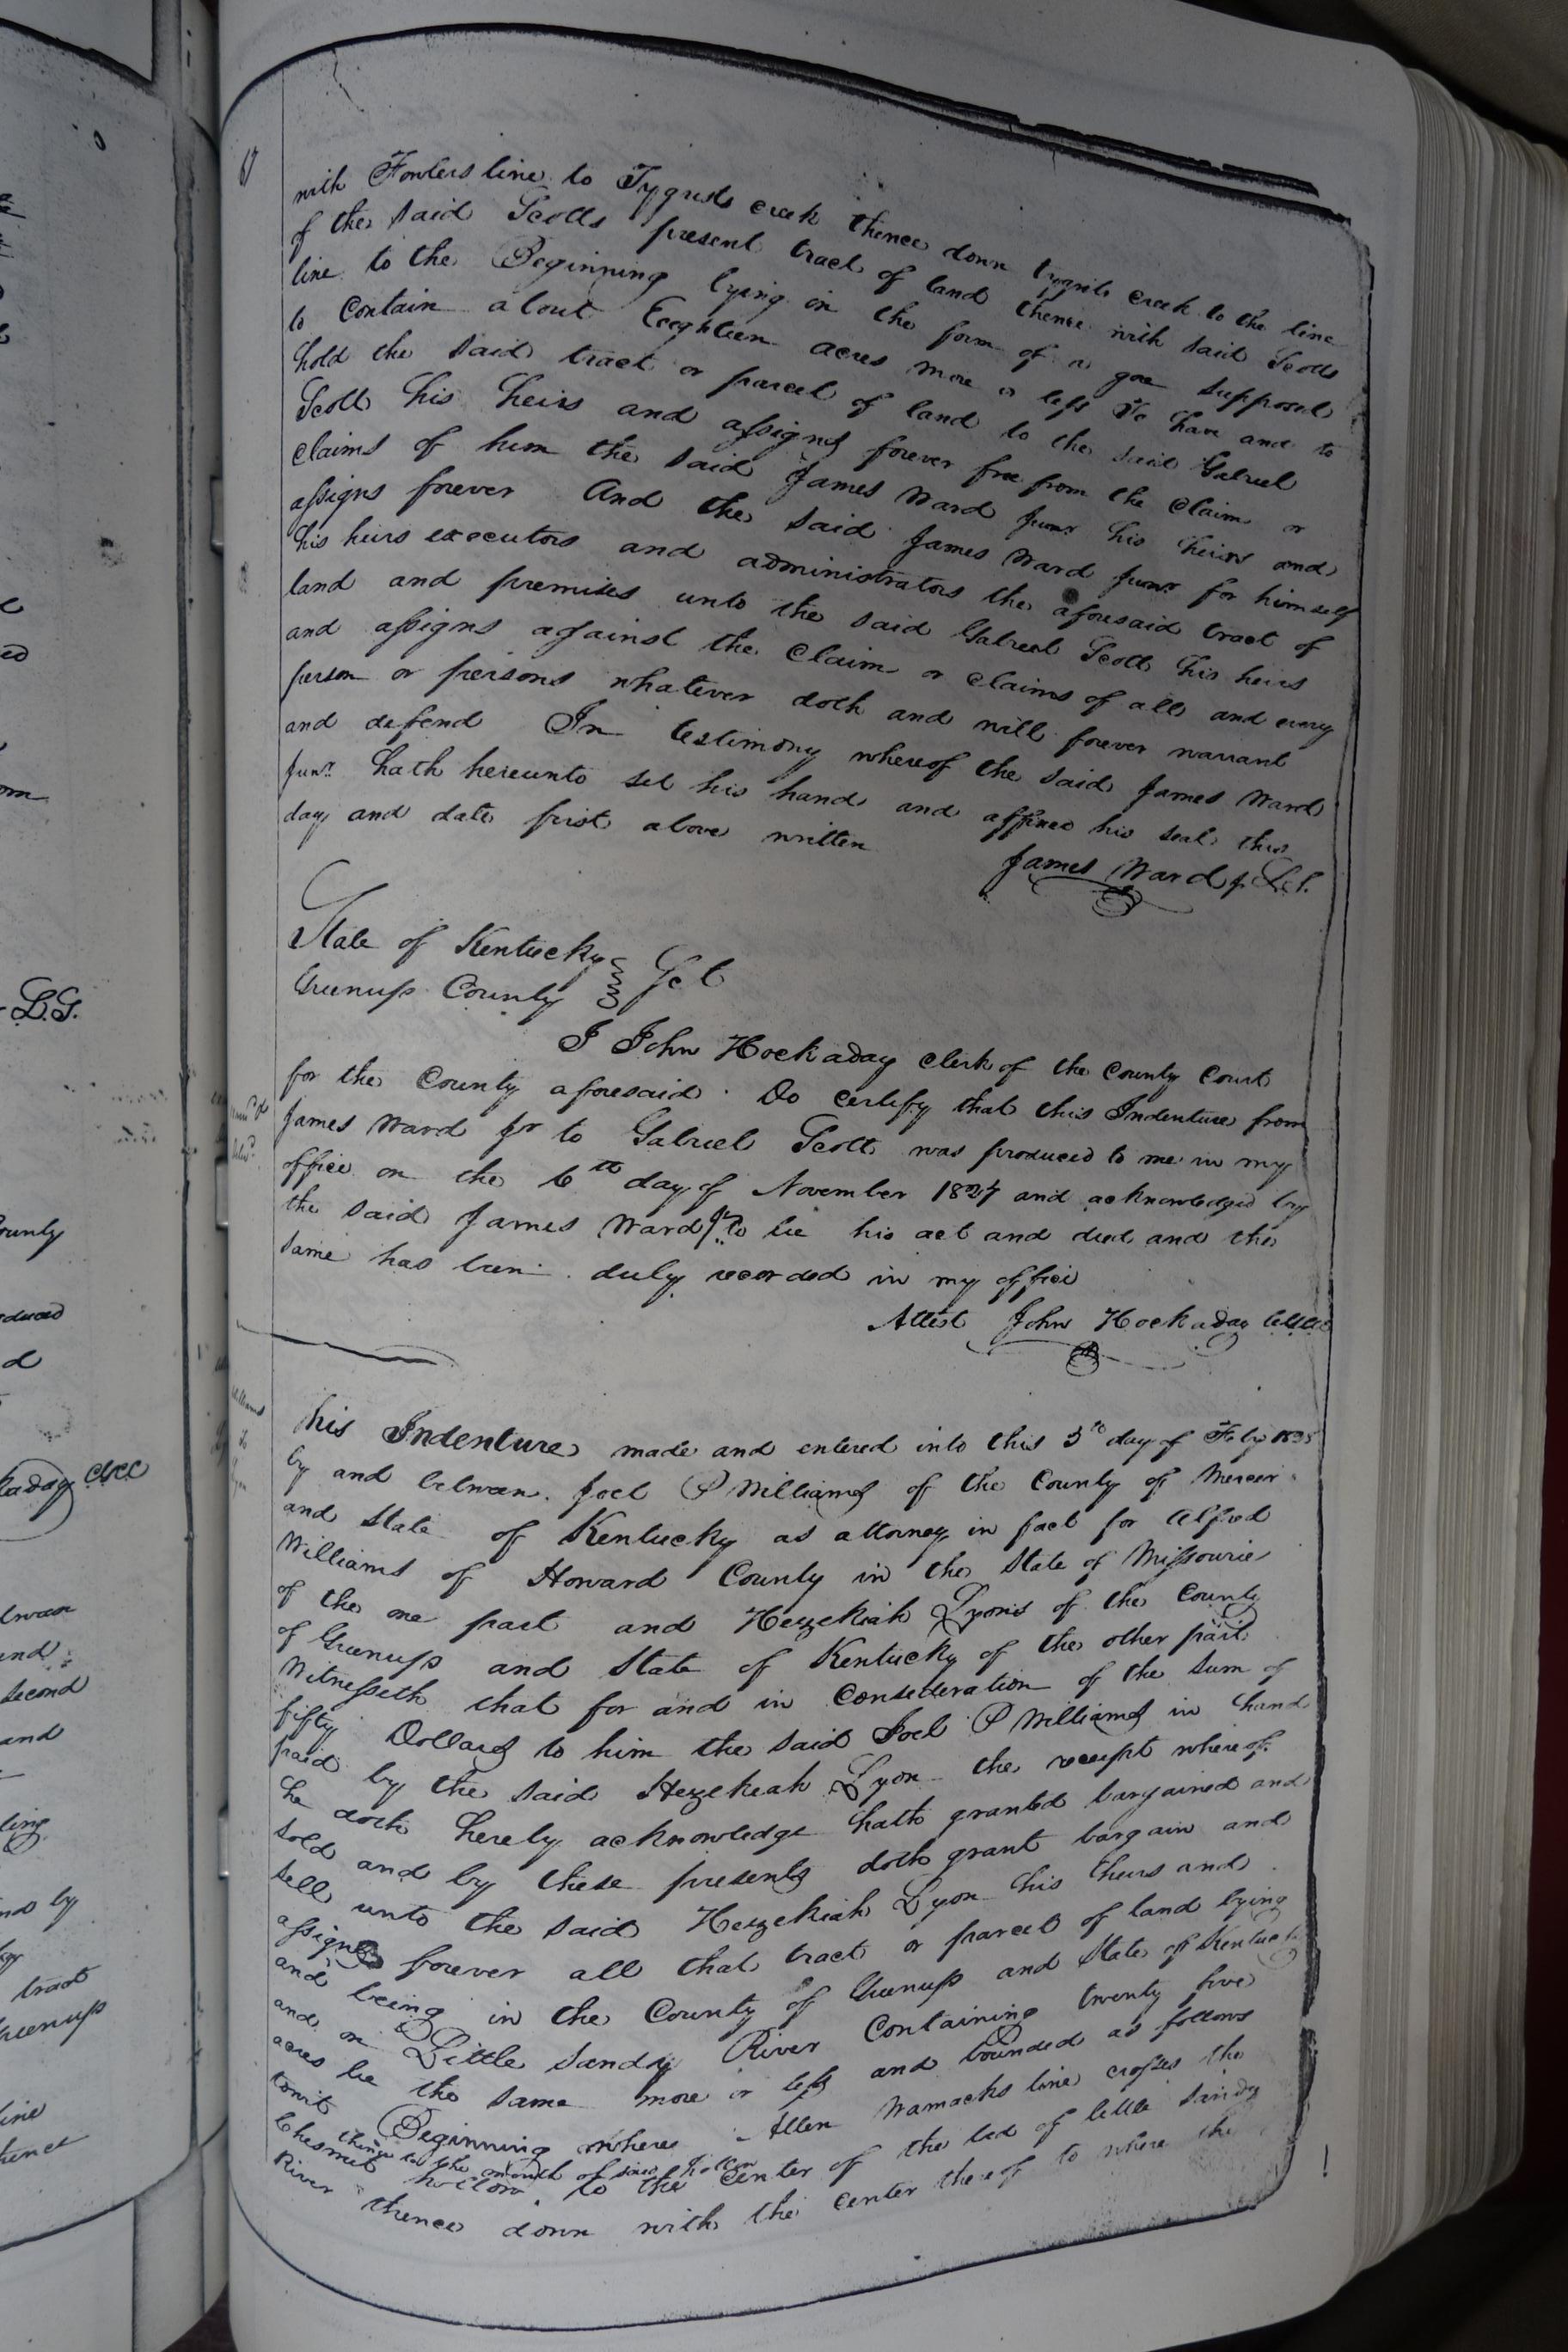 with Fowlers line to Tygerts creek thence down tygerts creek to the line
of the said Scotts present tract of land thence with said Scotts
line to the Beginning lying in the form of a gore supposed
to contain about Eeighteen acres more or less To have and to
hold the said tract or parcel of land to the said Gabriel
Scott his heirs and assigns forever free from the claim or
claims of him the said James Ward Junr his heirs and
assigns forever And the said James Ward Junr for himself
his heirs executors and administrators the aforesaid tract of
land and premises unto the said Gabreal Scott his heirs
and assigns against the claim or claims of all and every
person or persons whatever doth and will forever warrant
and defend In testimony whereof the said James Ward
Junr. hath hereunto set his hand and affixed his seal this
day and date first above written
James Ward jr L.S.
State of Kentucky
Greenup County } Sct
I John Hockaday clerk of the County Court
for the County aforesaid Do certify that this Indenture from
James Ward Jr to Gabriel Scott was produced to me in my
office on the 6th day of November 1827 and acknowledged by
the said James Ward Jr. to be his act and deed and the
same has been duly recorded in my office
Attest John Hockaday
Williams
to
Lyon
his Indenture made and entered into this day of Feby
by and between Joel P Williams of the County of Mercer
and State of Kentucky as attorney in fact for Alfred
Williams of Howard County in the State of Missourie
of the one part and Hezekiah Lyons of the County
of Greenup and State of Kentucky of the other part
Witnesseth that for and in consideration of the sum of
fifty Dollars to him the said Joel P Williams in hand
paid by the said Hezekiah Lyon the receipt whereof
he doth hereby acknowledge hath granted bargained and
sold and by these presents doth grant bargain and
sell unto the said Hezekiah Lyon his heirs and
assigns forever all that tract or parcel of land lying
and being in the County of Greenup and State of Kentucky
and on Little Sandy River containing twenty five
acres be the same more or less and bounded as follows
towit Beginning where Allen Wamacks line crosses the
thence to the mouth of said hollow
Chesnut hollow to the center of the bed of little Sandy
River thence down with the center thereof to where the